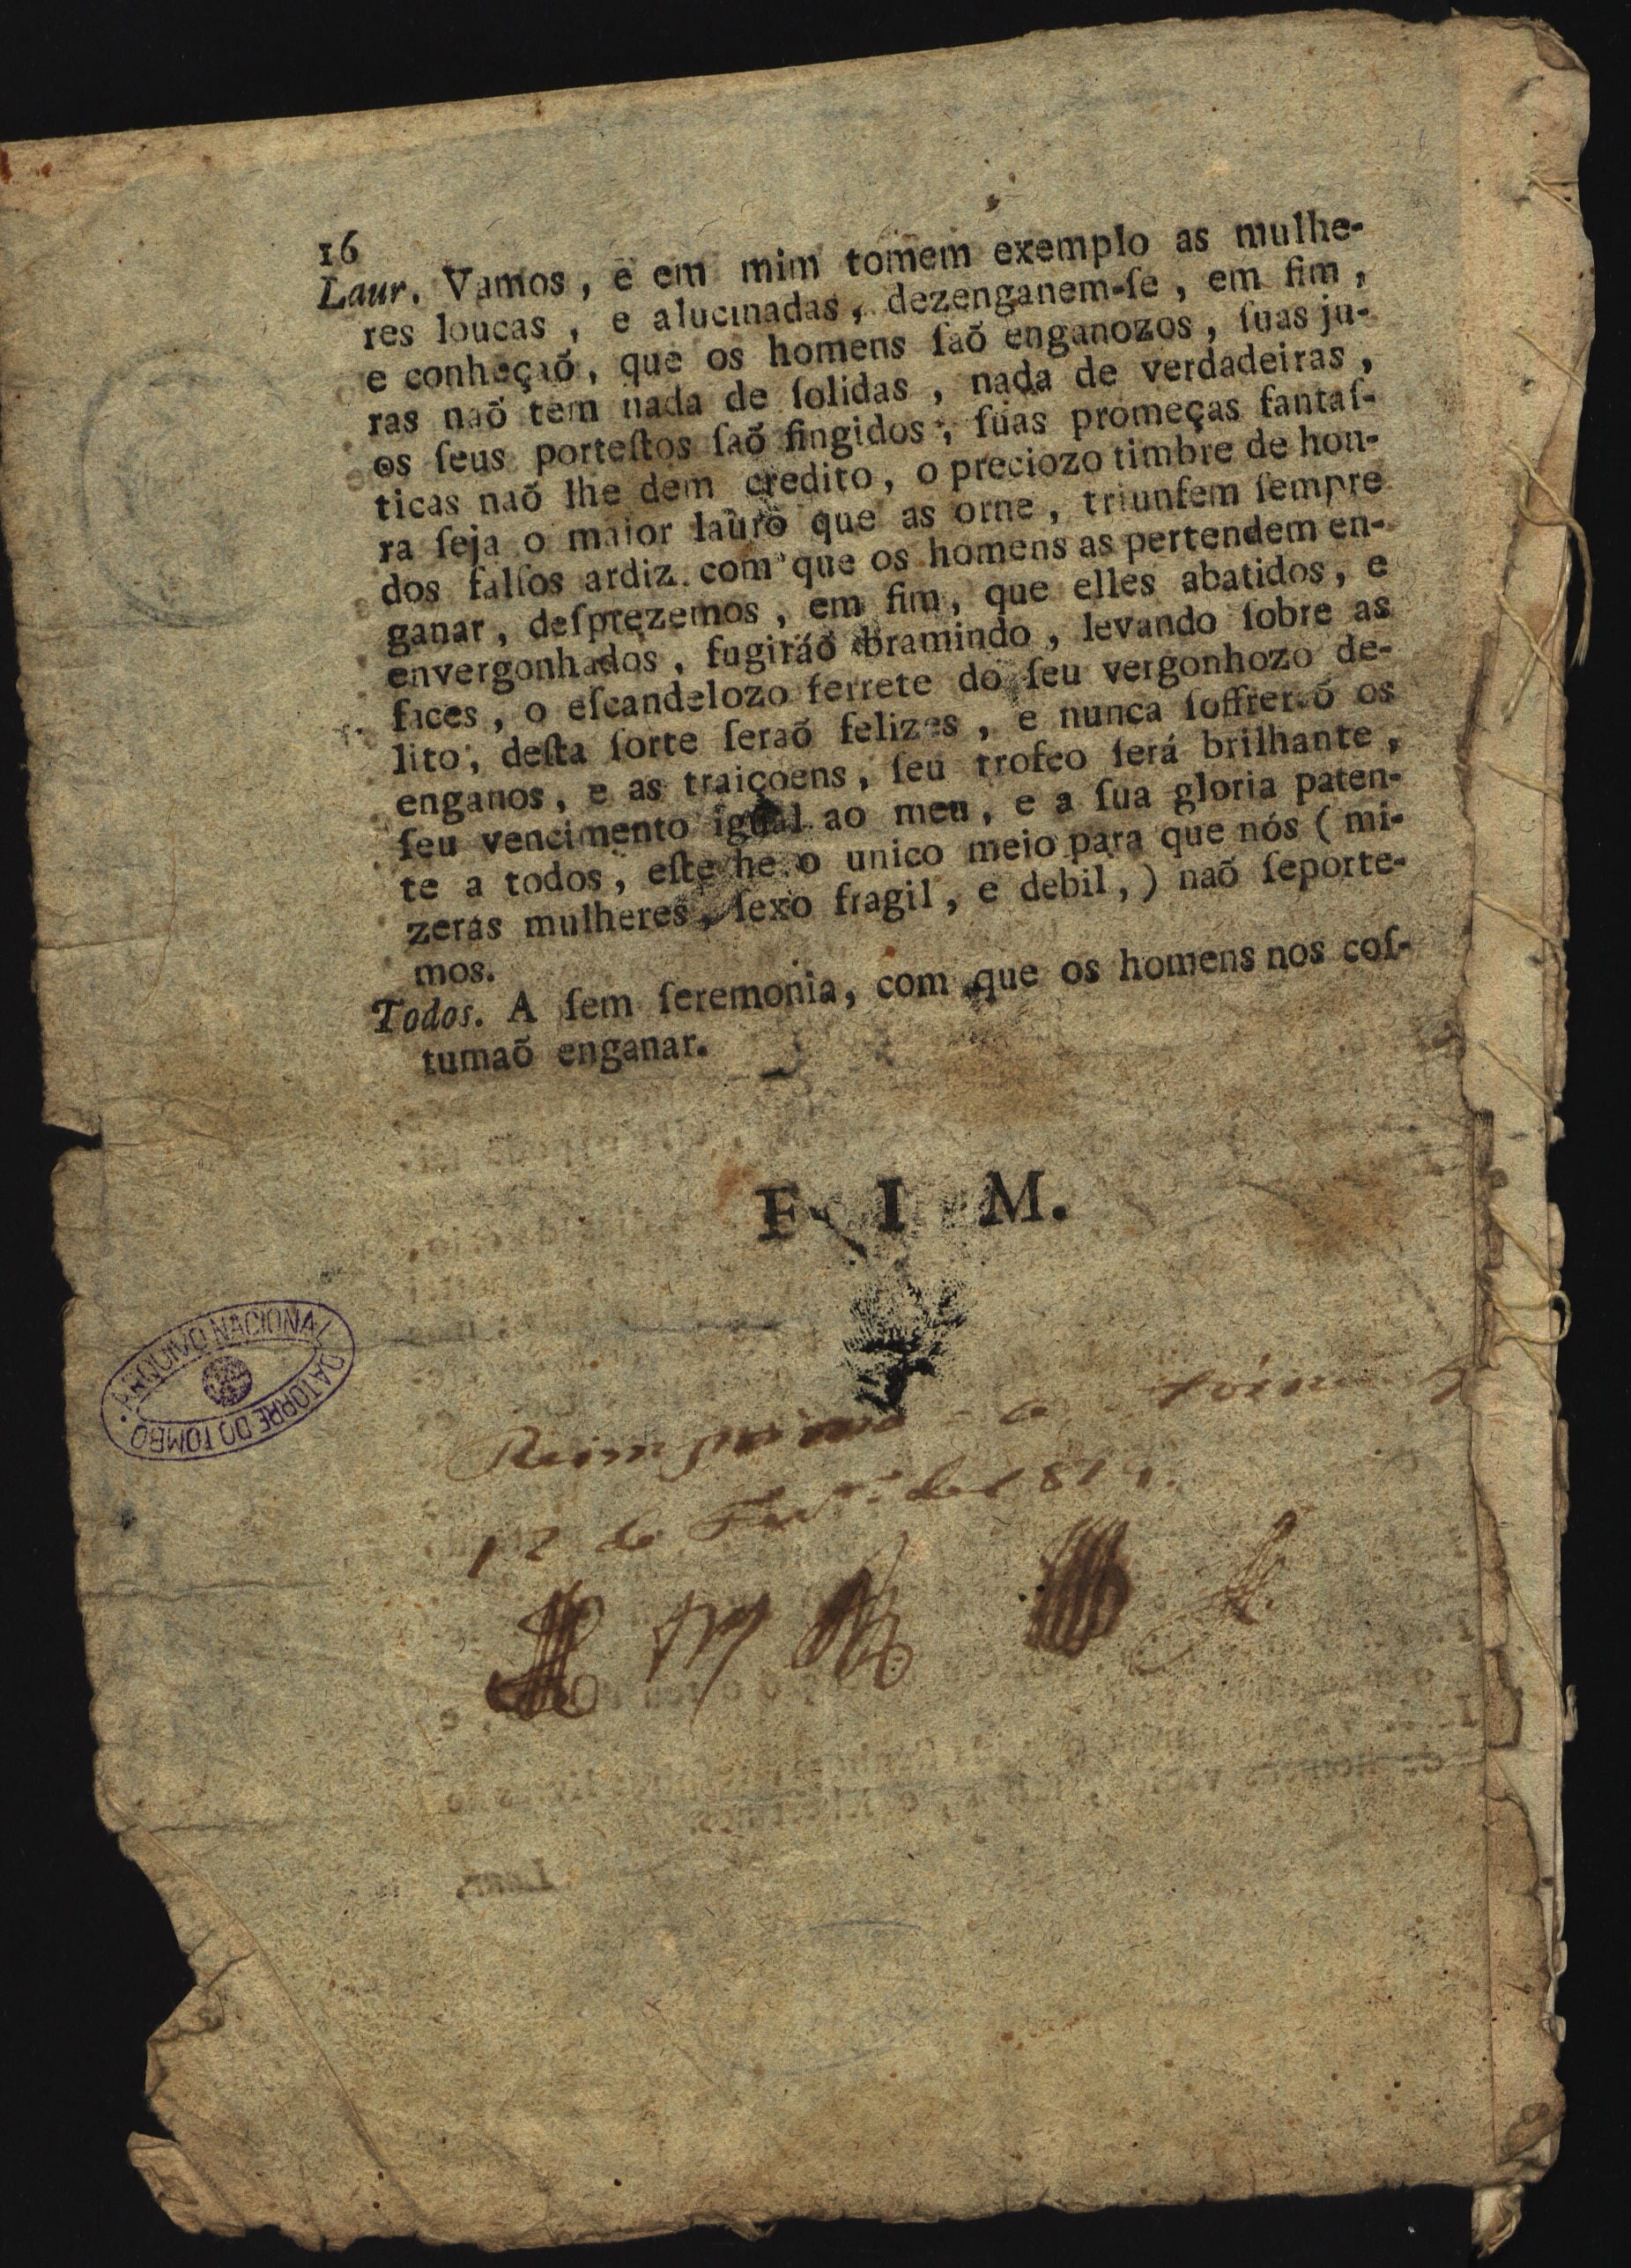 16
Laur. Vamos, e em mim tomem exemplo as mulhe-
res loucas, e alucinadas, dezenganem-ſe, em fim,
e conheçaõ, que os homens ſaõ enganozos, ſuas ju-
ras naõ tem nada de ſolidas, nada de verdadeiras,
os ſeus porteſtos ſaõ fingidos, ſuas promeças fantaſ-
ticas naõ lhe dem credito, o preciozo timbre de hon-
ra ſeja o maior lauro que as orne, triunfem ſempre
dos falſos ardiz com que os homens as pertendem en-
ganar, deſprezemos, em fim, que elles abatidos, e
envergonhados, fugiráõ bramindo, levando ſobre as
faces, o eſcandelozo ferrete do ſeu vergonhozo de-
lito; deſta ſorte ſeraõ felizes, e nunca ſoffreraõ os
enganos, e as traiçoens, ſeu trofeo ſerá brilhante,
ſeu vencimento igual ao meu, e a ſua gloria paten-
te a todos, eſte he o unico meio para que nós (mi-
zeras mulheres, ſexo fragil, e debil,) naõ ſeporte-
mos.
Todos. A ſem ſeremonia, com que os homens nos coſ-
tumaõ enganar.
FIM.
ARQUIVO NACIONAL DA TORRE DO TOMBO
Reimprima e
12 de